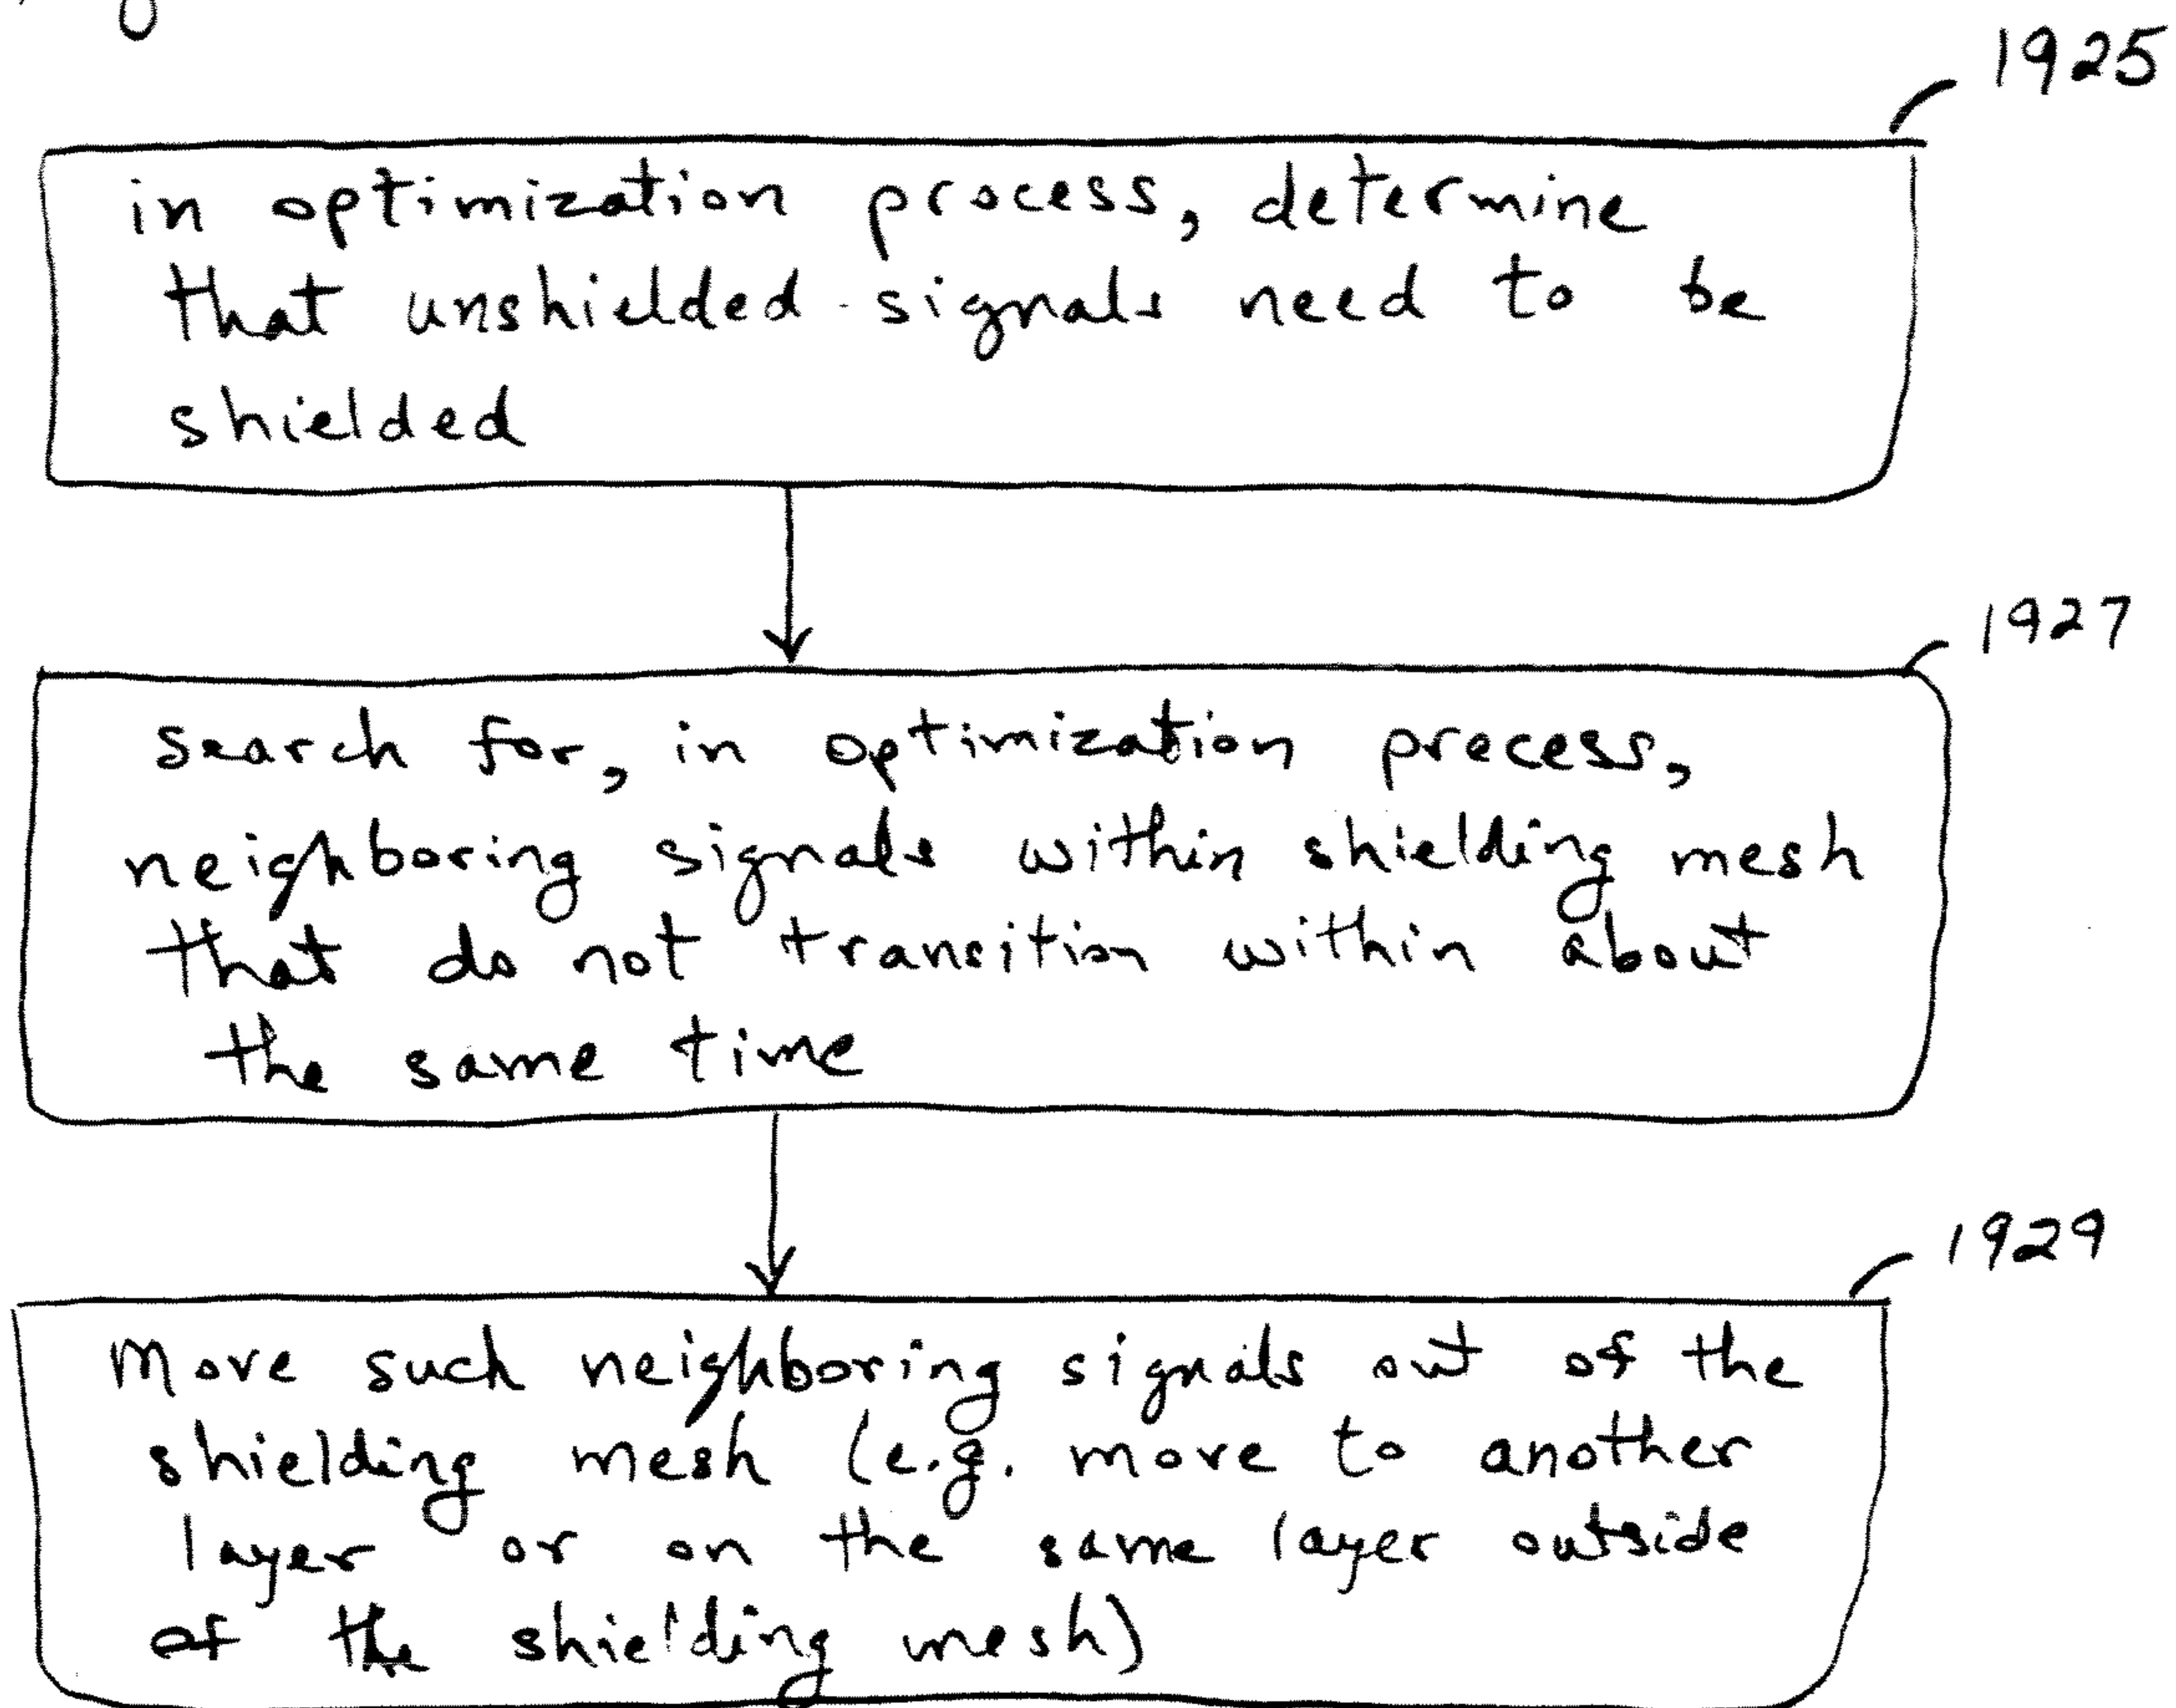 1925
in optimization process, determine
that unshielded signals need to be
shielded
1927
search for, in optimization precess,
neighboring signals within shielding mesh
that do not transition within about
the same time
1929
Move such neighboring signals out of the
shielding mesh (e.g. move to another
layer or on the same layer outside
of the shielding mesh)